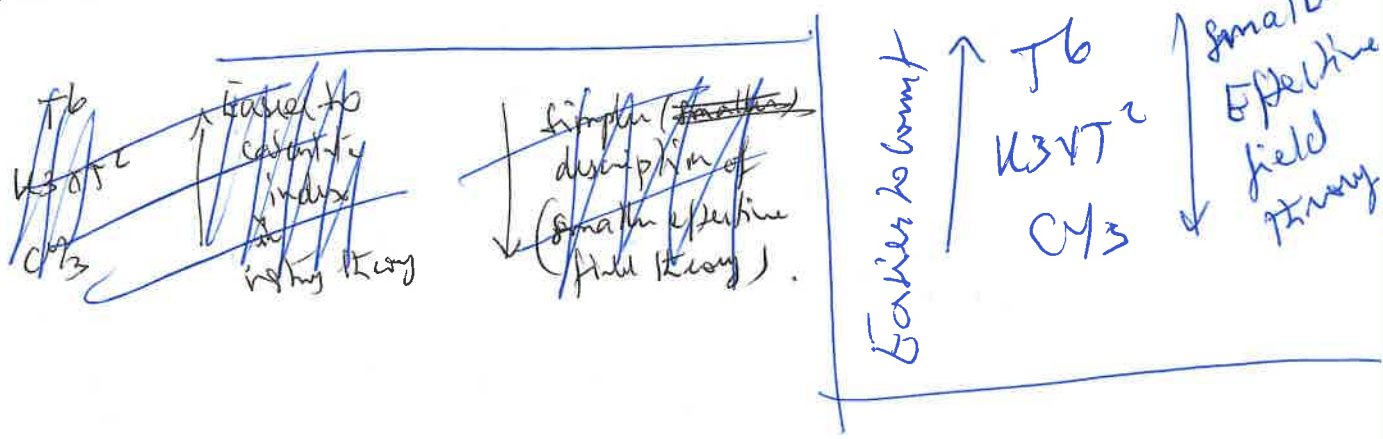 T6
K3xT²
CY3
Easier to
calculate
index
in
string theory
Simpler (smaller)
description of
(smaller effective
field theory).
Easier to count
T6
K3xT²
CY3
Smaller
Effective
field
theory